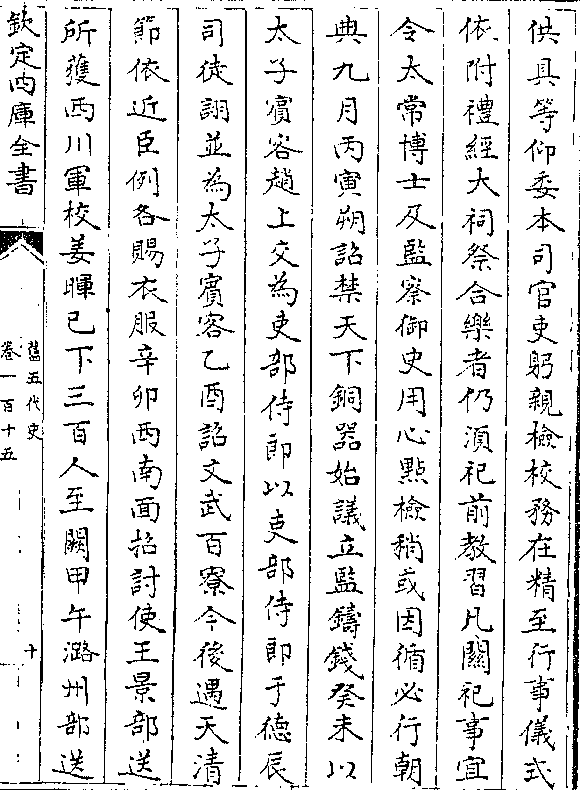 供具等仰委本司官吏躬親檢校務在精至行事儀式
依附禮經大祠祭合樂者仍須祀前教習凡關祀事宜
令太常博士及監察御史用心點檢稍或因循必行朝
典九月丙寅朔詔禁天下銅器始議立監鑄錢癸未以
太子賓客趙上交為吏部侍郎以吏部侍郎于德辰
司徒詡並為太子賓客乙酉詔文武百寮今後遇天清
節依近臣例各賜衣服辛卯西南面招討使王景部送
所獲西川軍校姜暉已下三百人至闕甲午潞州部送
欽定四庫全書
舊五代史
卷一百十五
十